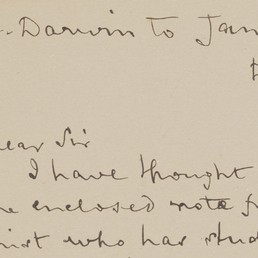 Darwin to Jam
ear Sir
I have thought
e enclosed note f
nist who has stud